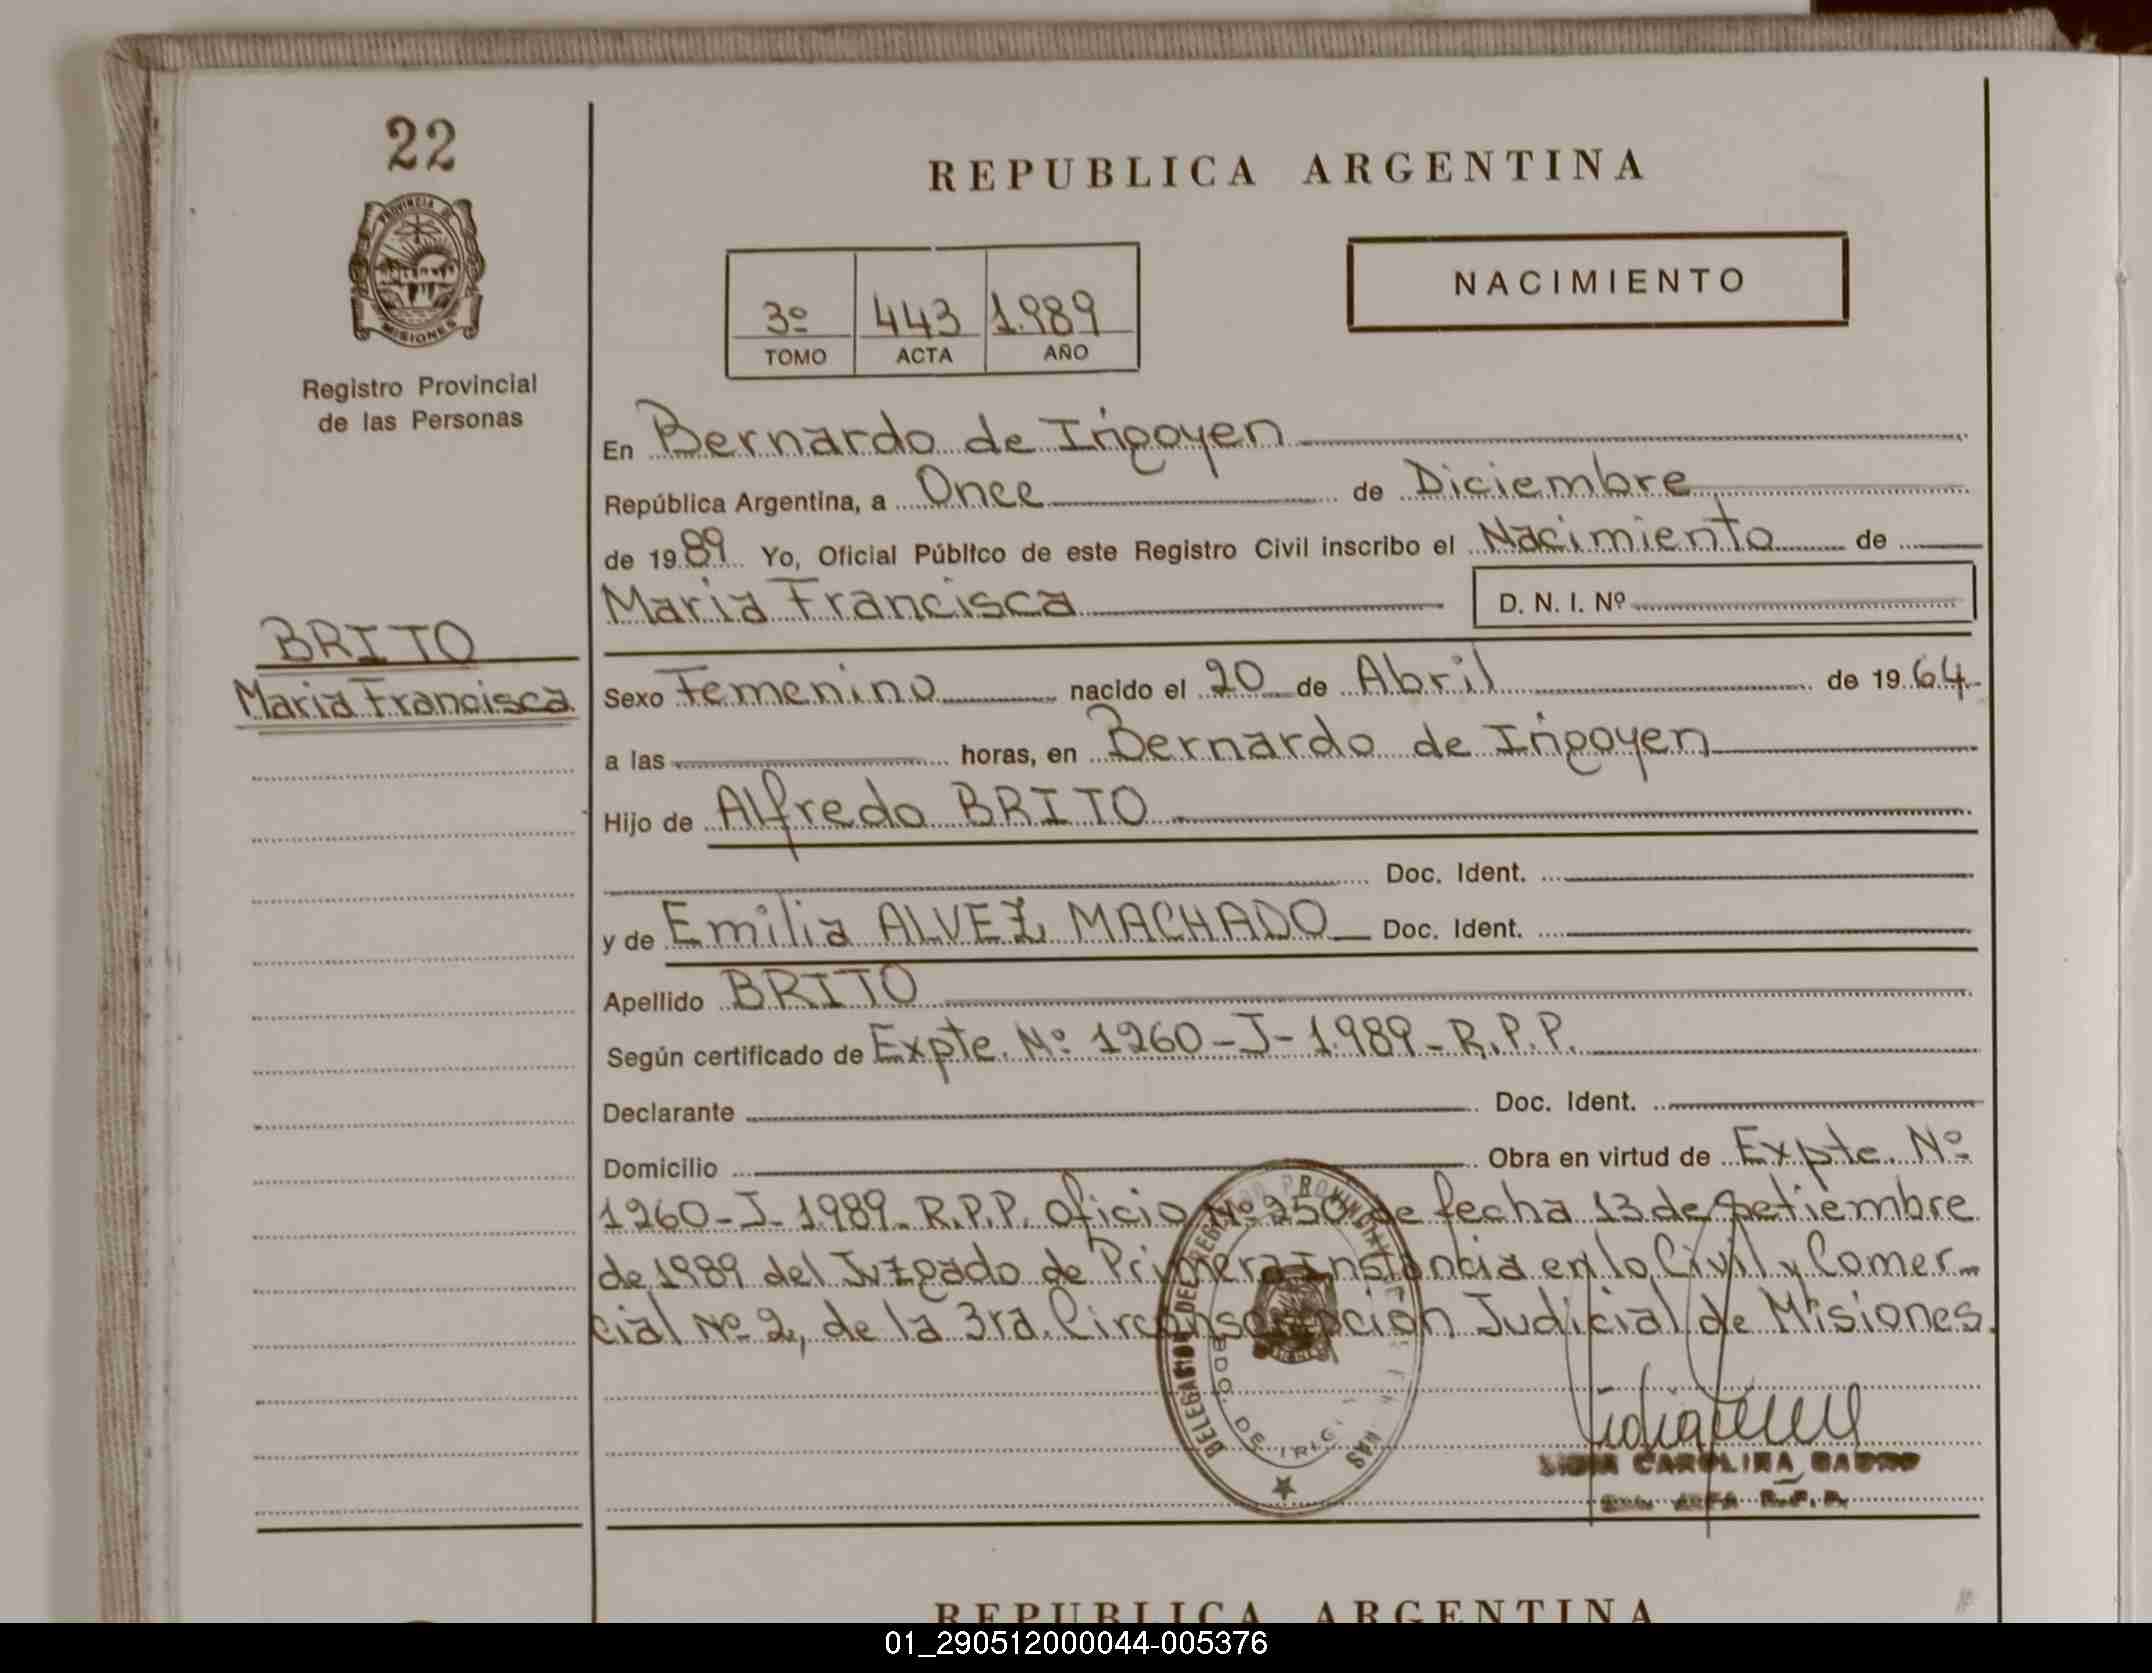 22
PROVINCIA DE
MISIONES
Registro Provincial
de las Personas
REPUBLICA ARGENTINA
3º 443 1.989
TOMO ACTA AÑO
NACIMIENTO
En Bernardo de Irigoyen
República Argentina, a Once de Diciembre
de 1989 Yo, Oficial Público de este Registro Civil inscribo el Nacimiento de
Maria Francisca D. N. I. Nº
BRITO
Maria Francisca
Sexo Femenino nacido el 20 de Abril de 1964
a las horas, en Bernardo de Irigoyen
Hijo de Alfredo BRITO
Doc. Ident.
y de Emilia ALVEZ MACHADO Doc. Ident.
Apellido BRITO
Según certificado de Expte. Nº 1260-J-1.989-R.P.P.
Declarante Doc. Ident.
Domicilio Obra en virtud de Expte. Nº
1260-J-1989-R.P.P. Oficio Nº 250 de fecha 13 de Setiembre
de 1989 del Juzgado de Primera Instancia en lo Civil y Comer-
cial Nº 2, de la 3ra. Circunscripción Judicial de Misiones.
DELEGACION DEL REGISTRO PROVINCIAL DE
BDO. DE IRIG
CAROLINA
R.P.P.
REPUBLICA ARGENTINA
01_290512000044-005376